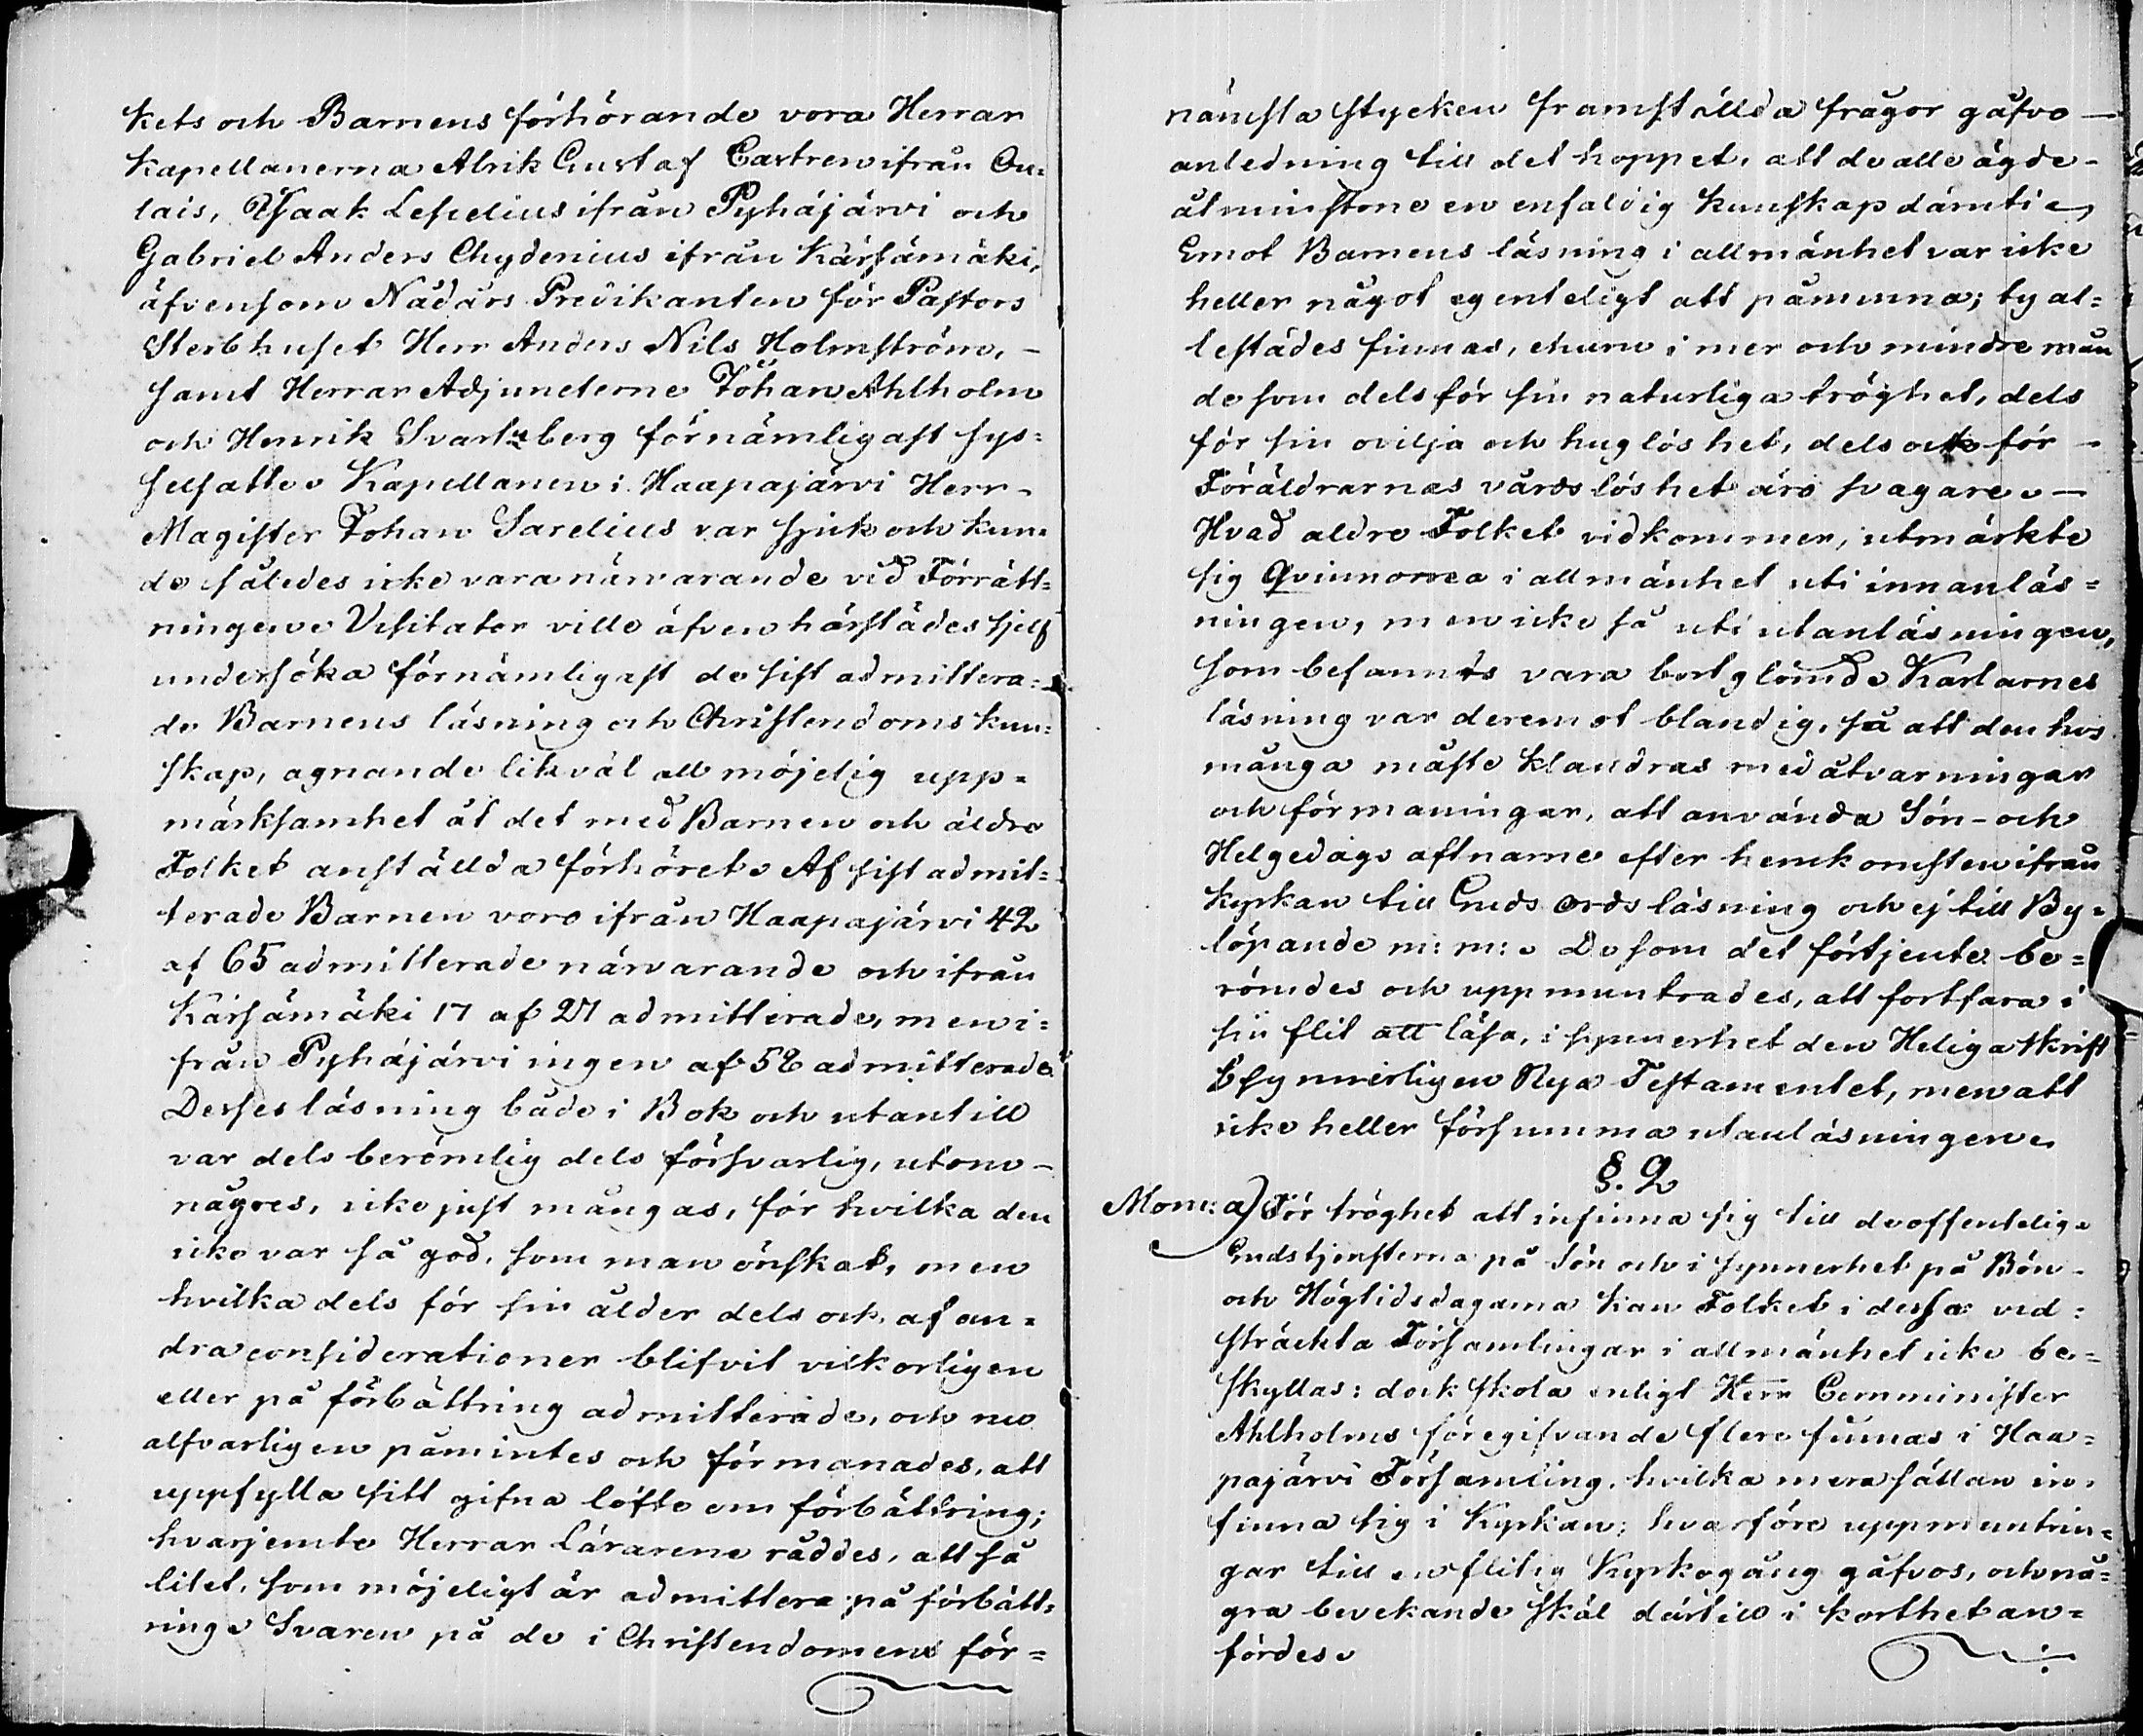 kets och Barnens förhörande vora Herrar
Kapellanerna Alrik Gustaf Castren ifrån Ou-
lais, Isaak Lespelius ifrån Pyhäjärvi och
Gabriel Anders Chydenius ifrån Kärsämäki,
äfvensom Nådårs Predikanten för Pastors
Sterbhuset Herr Anders Nils Holmström, –
samt Herrar Adjuncterne Johan Ahlholm
och Henrik Svartzberg förnämligast sys=
selsatte. Kapellanen i Haapajärvi Herr –
Magister Johan Sarelius var sjuk och kun-
de således icke vara närvarande vid Förrätt=
ningen. Visitator ville äfven härstädes sjelf
undersöka förnämligast de sist admittera=
de Barnens läsning och Christendoms kun=
skap, agnande likväl all möjelig upp=
märksamhet åt det med Barnen och äldre
Folket anställda förhöret. Af sist admit=
terade Barnen voro ifrån Haapajärvi 42
af 65 admitterade närvarande och ifrån
Kärsämäki 17 af 27 admitterade, men i=
från Pyhäjärvi ingen af 52 admitterade.
Desses läsning både i Bok och utantill
var dels berömlig dels försvarlig, utom –
någres, icke just mångas, för hvilka den
icke var så god, som man önskat, men
hvilka dels för sin ålder dels och af an=
dra considerationer blifvit vilkorligen
eller på förbättring admitterade, och nu
alfvarligen påmintes och förmanades, att
uppfylla sitt gifna löfte om förbättring;
hvarjemte Herrar Lärarene råddes, att så
litet, som möjeligt är admittera på förbätt=
ring. Svaren på de i Christendomens för=
nämsta stycken framställda frågor gåfvo –
anledning till det hoppet, att de alle ägde –
åtminstone en enfaldig kunskap däruti.
Emot Barnens läsning i allmänhet var icke
heller något egenteligt att påminna; ty al=
lestädes finnas, ehuru i mer och mindre mån
de som dels för sin naturliga tröghet, dels
för sin ovilja och huglöshet, dels och för –
Föräldrarnas vårdslöshet äro svagare. –
Hvad äldre Folket vidkommer, utmärkte
sig Qvinnorna i allmänhet uti innanläs=
ningen, men icke så uti utanläsningen,
som befanns vara bortglömd. Karlarnes
läsning var deremot blandig, så att den hos
många måste klandras med åtvarningar
och förmaningar, att använda Sön- och
Helgedags aftnarne efter hemkomsten ifrån
kyrkan till Guds ords läsning och ej till By=
löpande m: m: . De som det förtjente be=
römdes och uppmuntrades, att fortfara i
sin flit att läsa, i synnerhet den Heliga skrift
Efynnerligen Nya Testamentet, men att
icke heller försumma utanläsningen.
§. 2
Mom: a) För tröghet att infinna sig till de offentelige
Gudstjensterna på Sön och i synnerhet på Bön –
och Högtidsdagarna kan Folket i dessa vid=
sträckta Församlingar i allmänhet icke be=
skyllas: dock skola enligt Herr Comminister
Ahlholms föregifvande flere finnas i Haa=
pajärvi Församling, hvilka mera sällan in-
finna sig i Kyrkan; hvarföre uppmuntrin=
gar till en flitig Kyrkogång gåfvos, och nå=
gra bevekande skäl därtill i korthet an=
fördes.